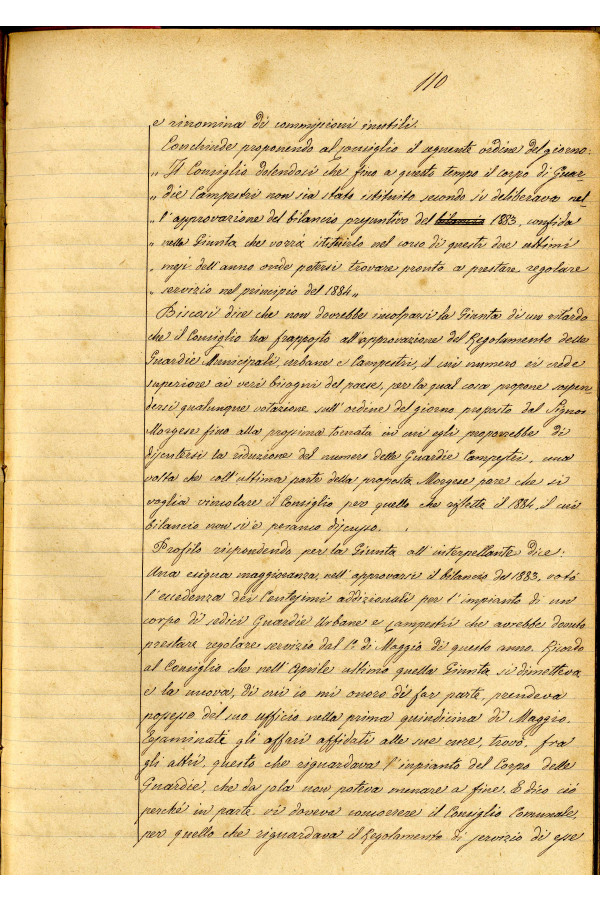 110
e rinomina di commissioni inutili.
Conchiude proponendo al Consiglio il seguente ordine del giorno:
„ Il Consiglio dolendosi che fino a questo tempo il corpo di Guar-
„ die Campestri non sia stato istituito secondo si deliberava nel-
„ l'approvazione del bilancio presuntivo del bilancio 1883, confida
„ nella Giunta che vorrà istituirlo nel corso di questi due ultimi
„ mesi dell'anno onde potersi trovare pronto a prestare regolare
„ servizio nel principio del 1884„
Biscosi dice che non dovrebbe incolparsi la Giunta di un ritardo
che il Consiglio ha frapposto all'approvazione del Regolamento delle
Guardie Municipali, urbane e Campestri, il cui numero ei crede
superiore ai veri bisogni del paese, per la qual cosa propone sospen-
dersi qualunque votazione sull'ordine del giorno proposto dal Signor
Morgese fino alla prossima tornata in cui egli proporrebbe di
discutersi la riduzione del numero delle Guardie Campestri, una
volta che coll'ultima parte della proposta Morgese pare che si
voglia vincolare il Consiglio per quello che riflette il 1884, il cui
bilancio non si è peranco discusso.
Profilo rispondendo per la Giunta all'interpellante dice:
Una esigua maggioranza, nell'approvarsi il bilancio del 1883, votò
l'eccedenza dei Centesimi addizionali per l'impianto di un
corpo di sedici Guardie Urbane e Campestri che avrebbe dovuto
prestare regolare servizio dal 1° di Maggio di questo anno. Ricordo
al Consiglio che nell'Aprile ultimo quella Giunta si dimetteva
e la nuova, di cui io mi onoro di far parte, prendeva
possesso del suo ufficio nella prima quindicina di Maggio.
Esaminati gli affari affidati alle sue cure, trovò, fra
gli altri, questo che riguardava l'impianto del Corpo delle
Guardie, che da sola non poteva menare a fine. E dico ciò
perché in parte vi doveva concorrere il Consiglio Comunale,
per quello che riguardava il Regolamento di servizio di esse